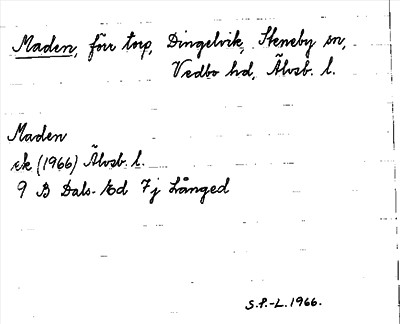 Maden, förr torp, Dingelvik, Steneby sn,
Vedbo hd, Älvsb. l.
Maden
ek (1966) Älvsb. l.
9 B Dals-Ed 7j Långed
S.P.-L. 1966.